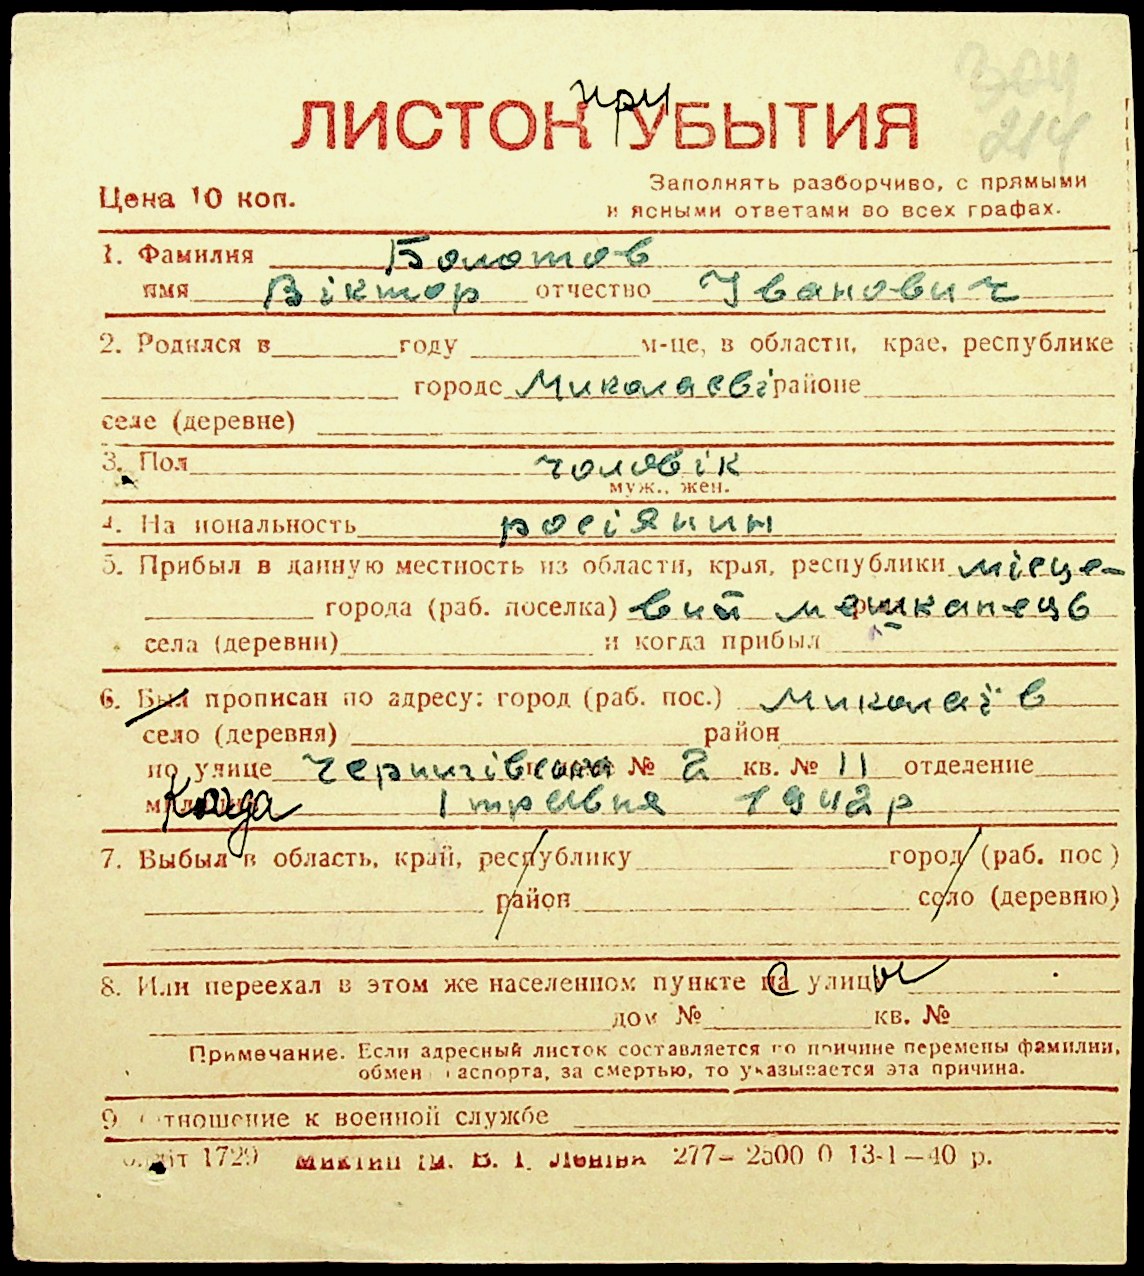 304
при 214
ЛИСТОК УБЫТИЯ
Цена 10 коп.
Заполнять разборчиво, с прямыми
и ясными ответами во всех графах.
1. Фамилия Болотов
имя Віктор отчество Іванович
2. Родился в году м-це, в области, крае, республике
городе Миколаєві районе
селе (деревне)
3. Пол чоловік
муж., жен.
4. Национальность росіянин
5. Прибыл в данную местность из области, края, республики місце-
города (раб. поселка) вий мешканець
села (деревни) и когда прибыл
6. Был прописан по адресу: город (раб. пос.) Миколаїв
село (деревня) район
по улице Чернигівська № 2 кв. № 11 отделение
Когда 1 травня 1942 р
7. Выбыл в область, край, республику город (раб. пос)
район село (деревню)
8. Или переехал в этом же населенном пункте на с улицы
дом № кв. №
Примечание. Если адресный листок составляется по причине перемены фамилии,
обмен паспорта, за смертью, то указывается эта причина.
9 Отношение к военной службе
1729 ім. В. І. Леніна 277–2500 0 13-1–40 р.